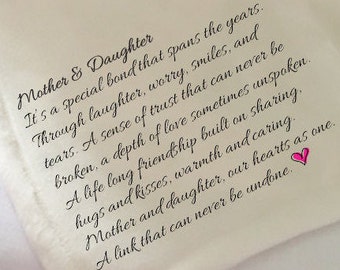 Mother & Daughter
It's a special bond that spans the years.
Through laughter, worry, smiles, and
tears. A sense of trust that can never be
broken, a depth of love sometimes unspoken.
A life long friendship built on sharing,
hugs and kisses, warmth and caring.
Mother and daughter, our hearts as one.
A link that can never be undone.